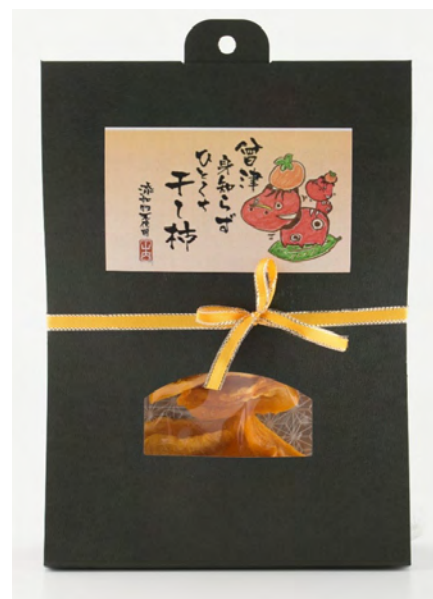 會津
身知らず
ひとくちサ
干し柿
添加物不使用
山内